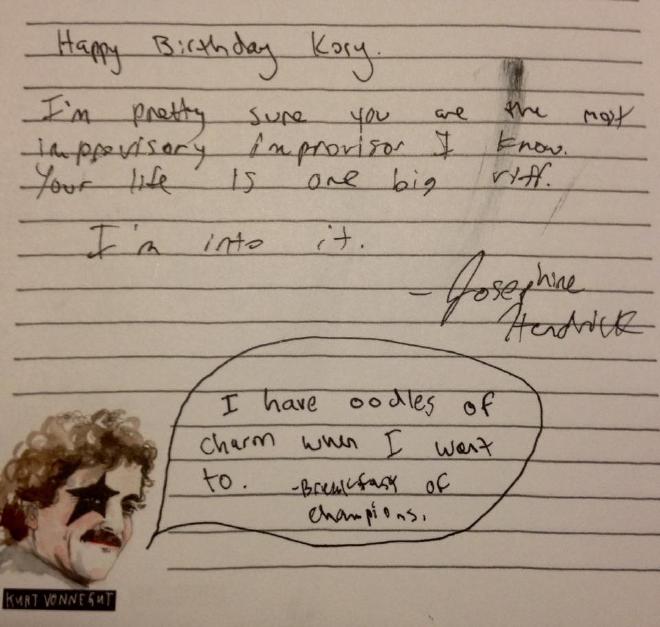 Happy Birthday Kory.
I'm pretty sure you are the most
improvisory improvisor I know.
Your life is one big riff.
I'm into it.
- Josephine
Hendrick
I have oodles of
charm when I want
to. -Breakfast of
champions.
KURT VONNEGUT